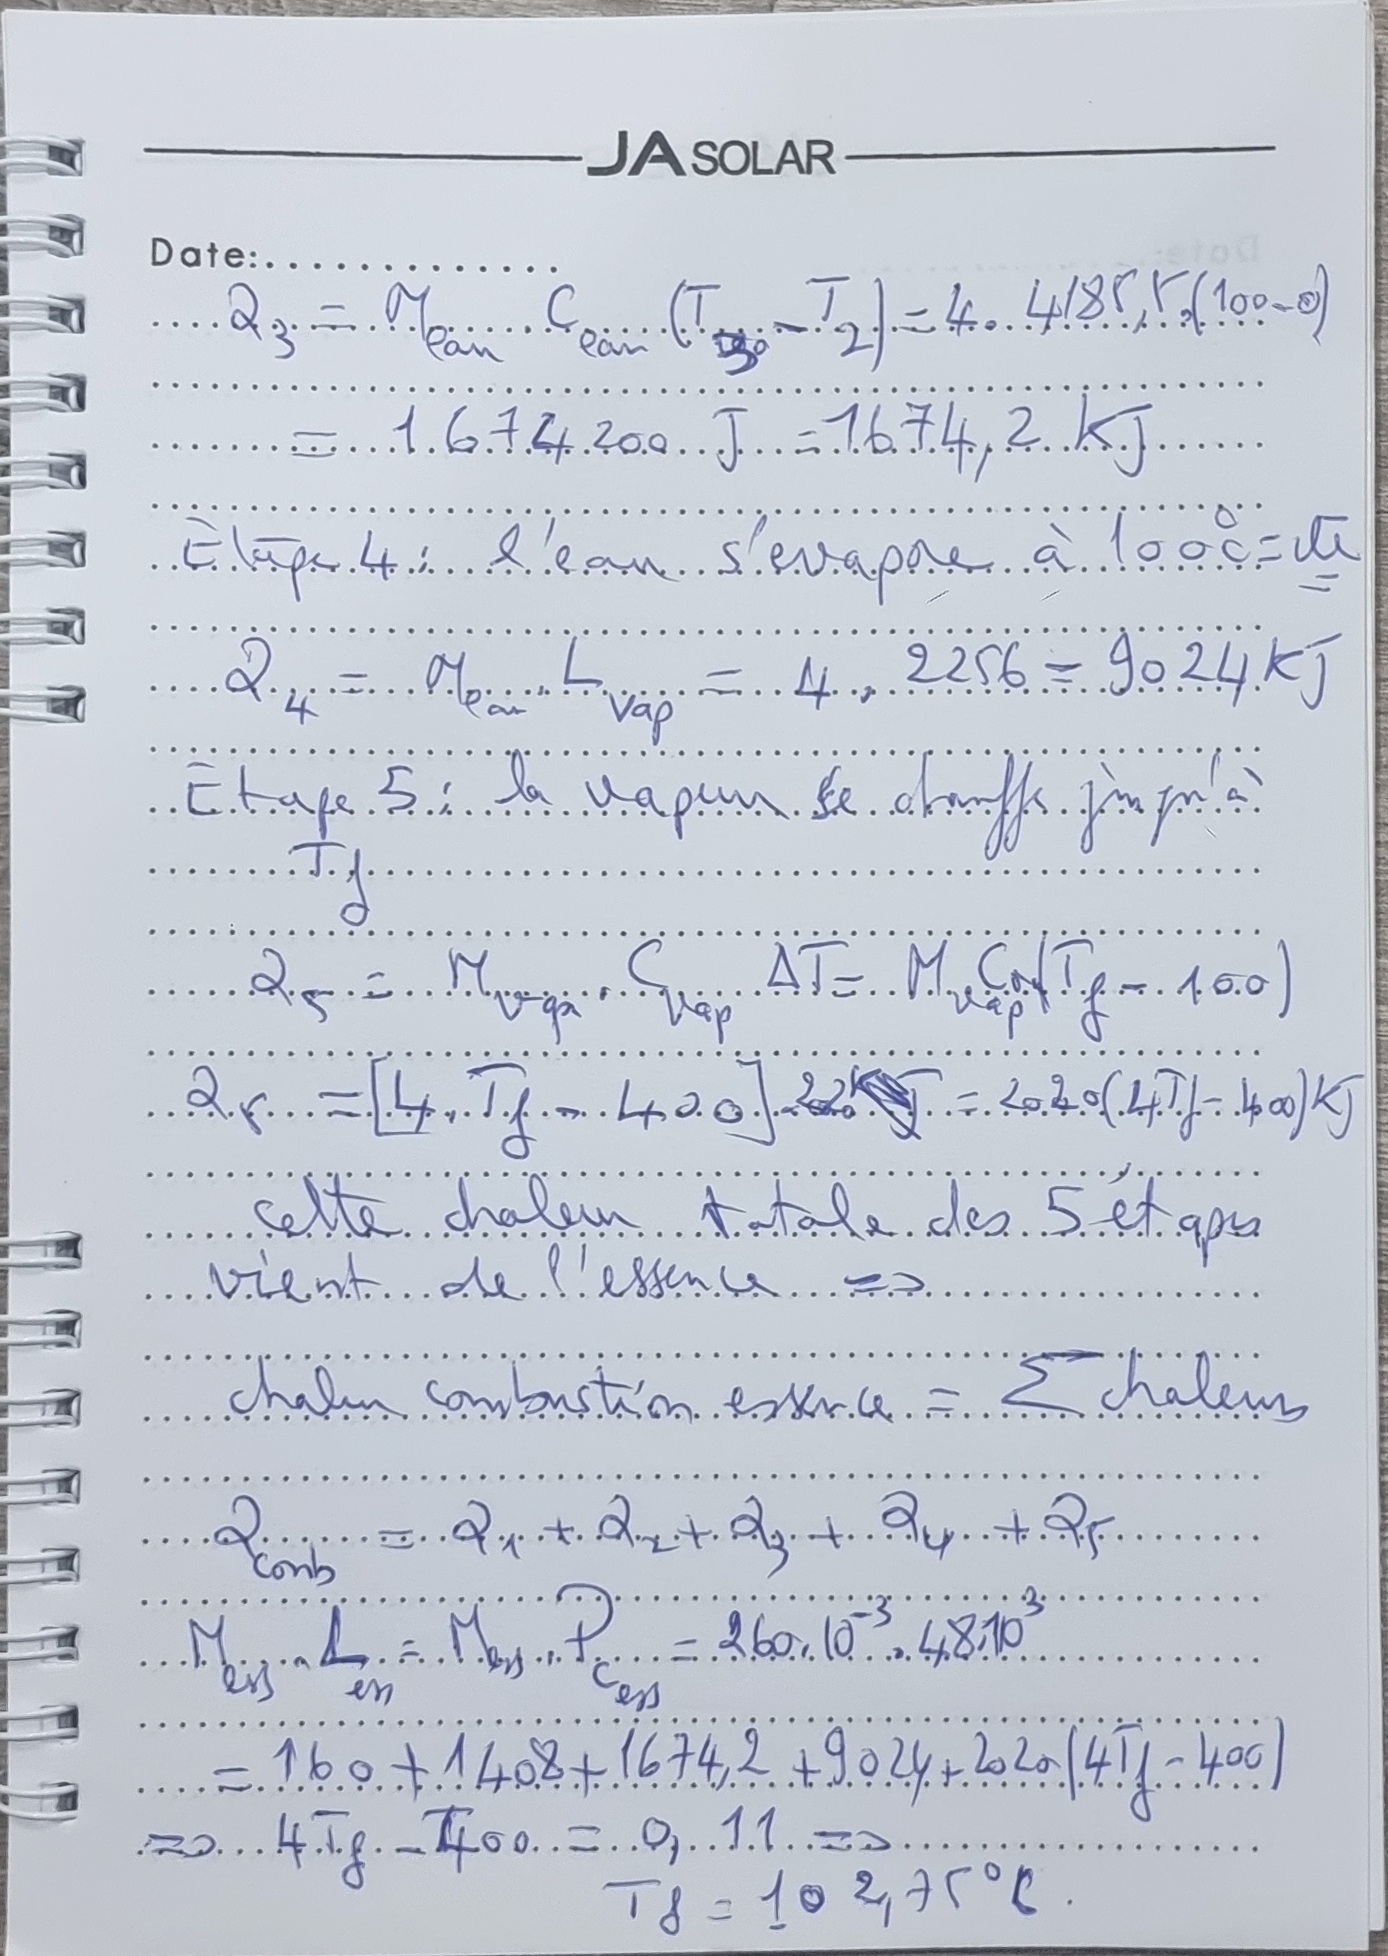 JA SOLAR
Date:..............
Q3 = Meau Ceau (T30 - T2) = 4. 4185,5.(100-0)
= 1.674.200 J = 1674,2 KJ
Étape 4: l'eau s'evapore à 100°C = cte
Q4 = Meau. Lvap = 4. 2256 = 9024 KJ
Étape 5: la vapeur se chauffe jusqu'à
Tf
Q5 = Mvap. Cvap ΔT = Mvap Cvap(Tf - 100)
Q5 = [4.Tf - 400] = 2020(4Tf - 400)KJ
cette chaleur totale des 5 étapes
vient de l'essence =>
chaleur combustion essence = Σ chaleurs
Qcomb = Q1 + Q2 + Q3 + Q4 + Q5
Mess. Less = Mess. Pcess = 260.10^-3. 48.10^3
= 160 + 1408 + 1674,2 + 9024 + 2020(4Tf - 400)
=> 4Tf - 400 = 0,11 =>
Tf = 102,75°C.